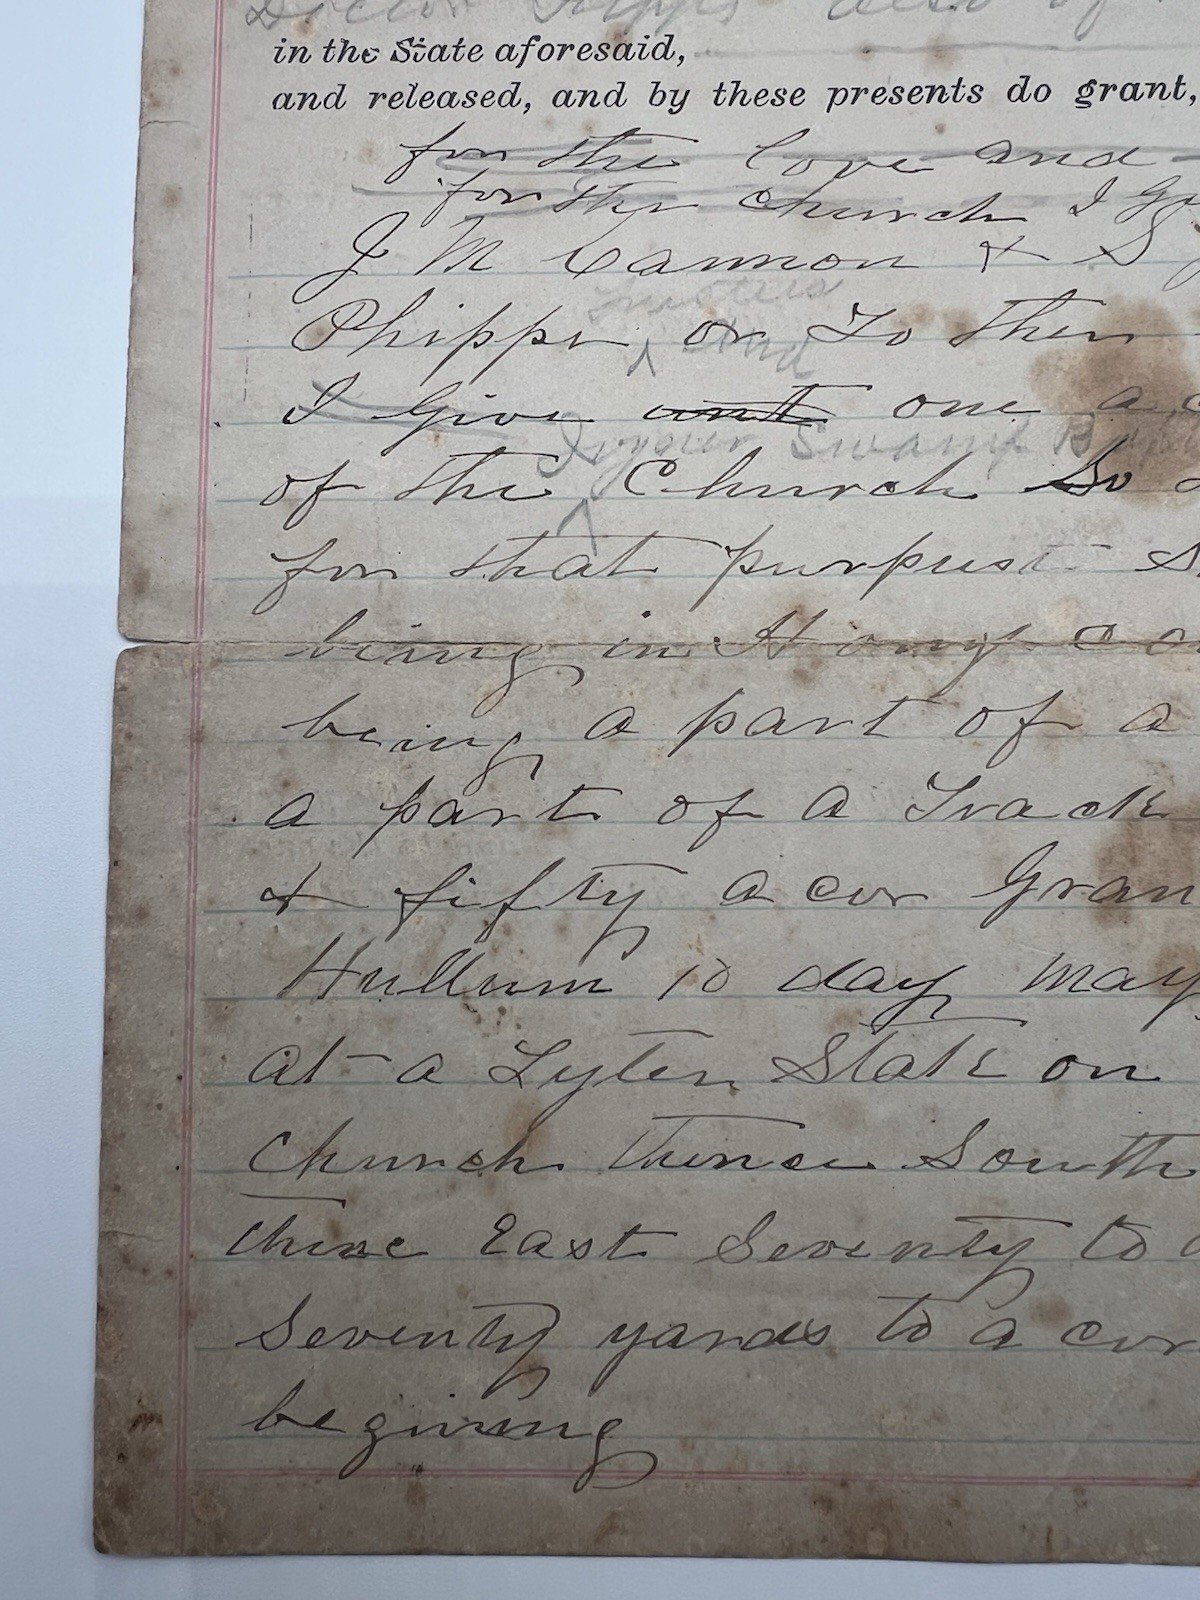 Doctor Phipps also of
in the State aforesaid,
and released, and by these presents do grant,
for the love and
for the church I
J M Cannon + S
Trustees
Phipps or To them
And
I Give one
Joyner Swamp
of the Church So
for that purpust
being in Horry
being a part of a
a part of a Track
+ fifty acer Gran
Hullum 10 day May
at a Lyten State on
Church thence South
thine East Seventy to
Seventy yards to a cor
begining